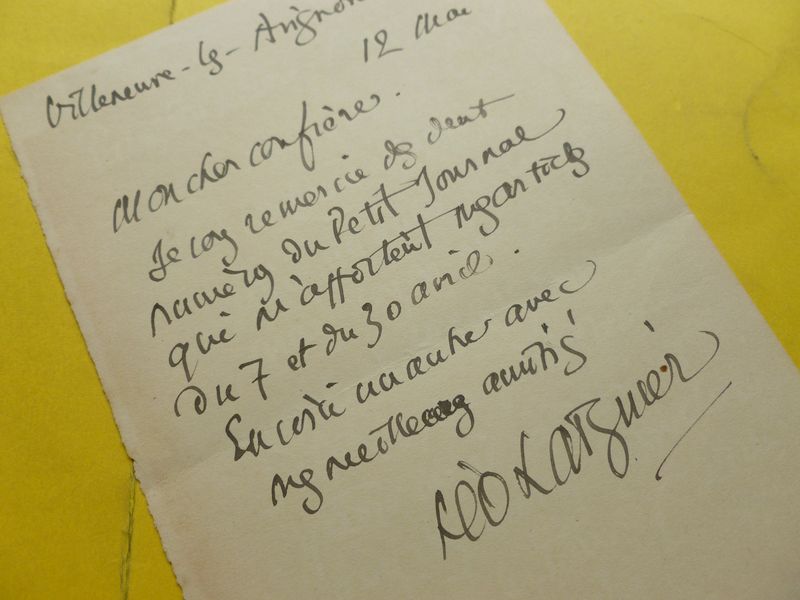 Villeneuve-lès-Avignon
12 Mai
Mon cher confrère.
Je vous remercie des deux
numéros du Petit Journal
qui m'apportent mes articles
du 7 et du 30 avril.
Encore un autre avec
mes meilleures amitiés
Léo Larguier